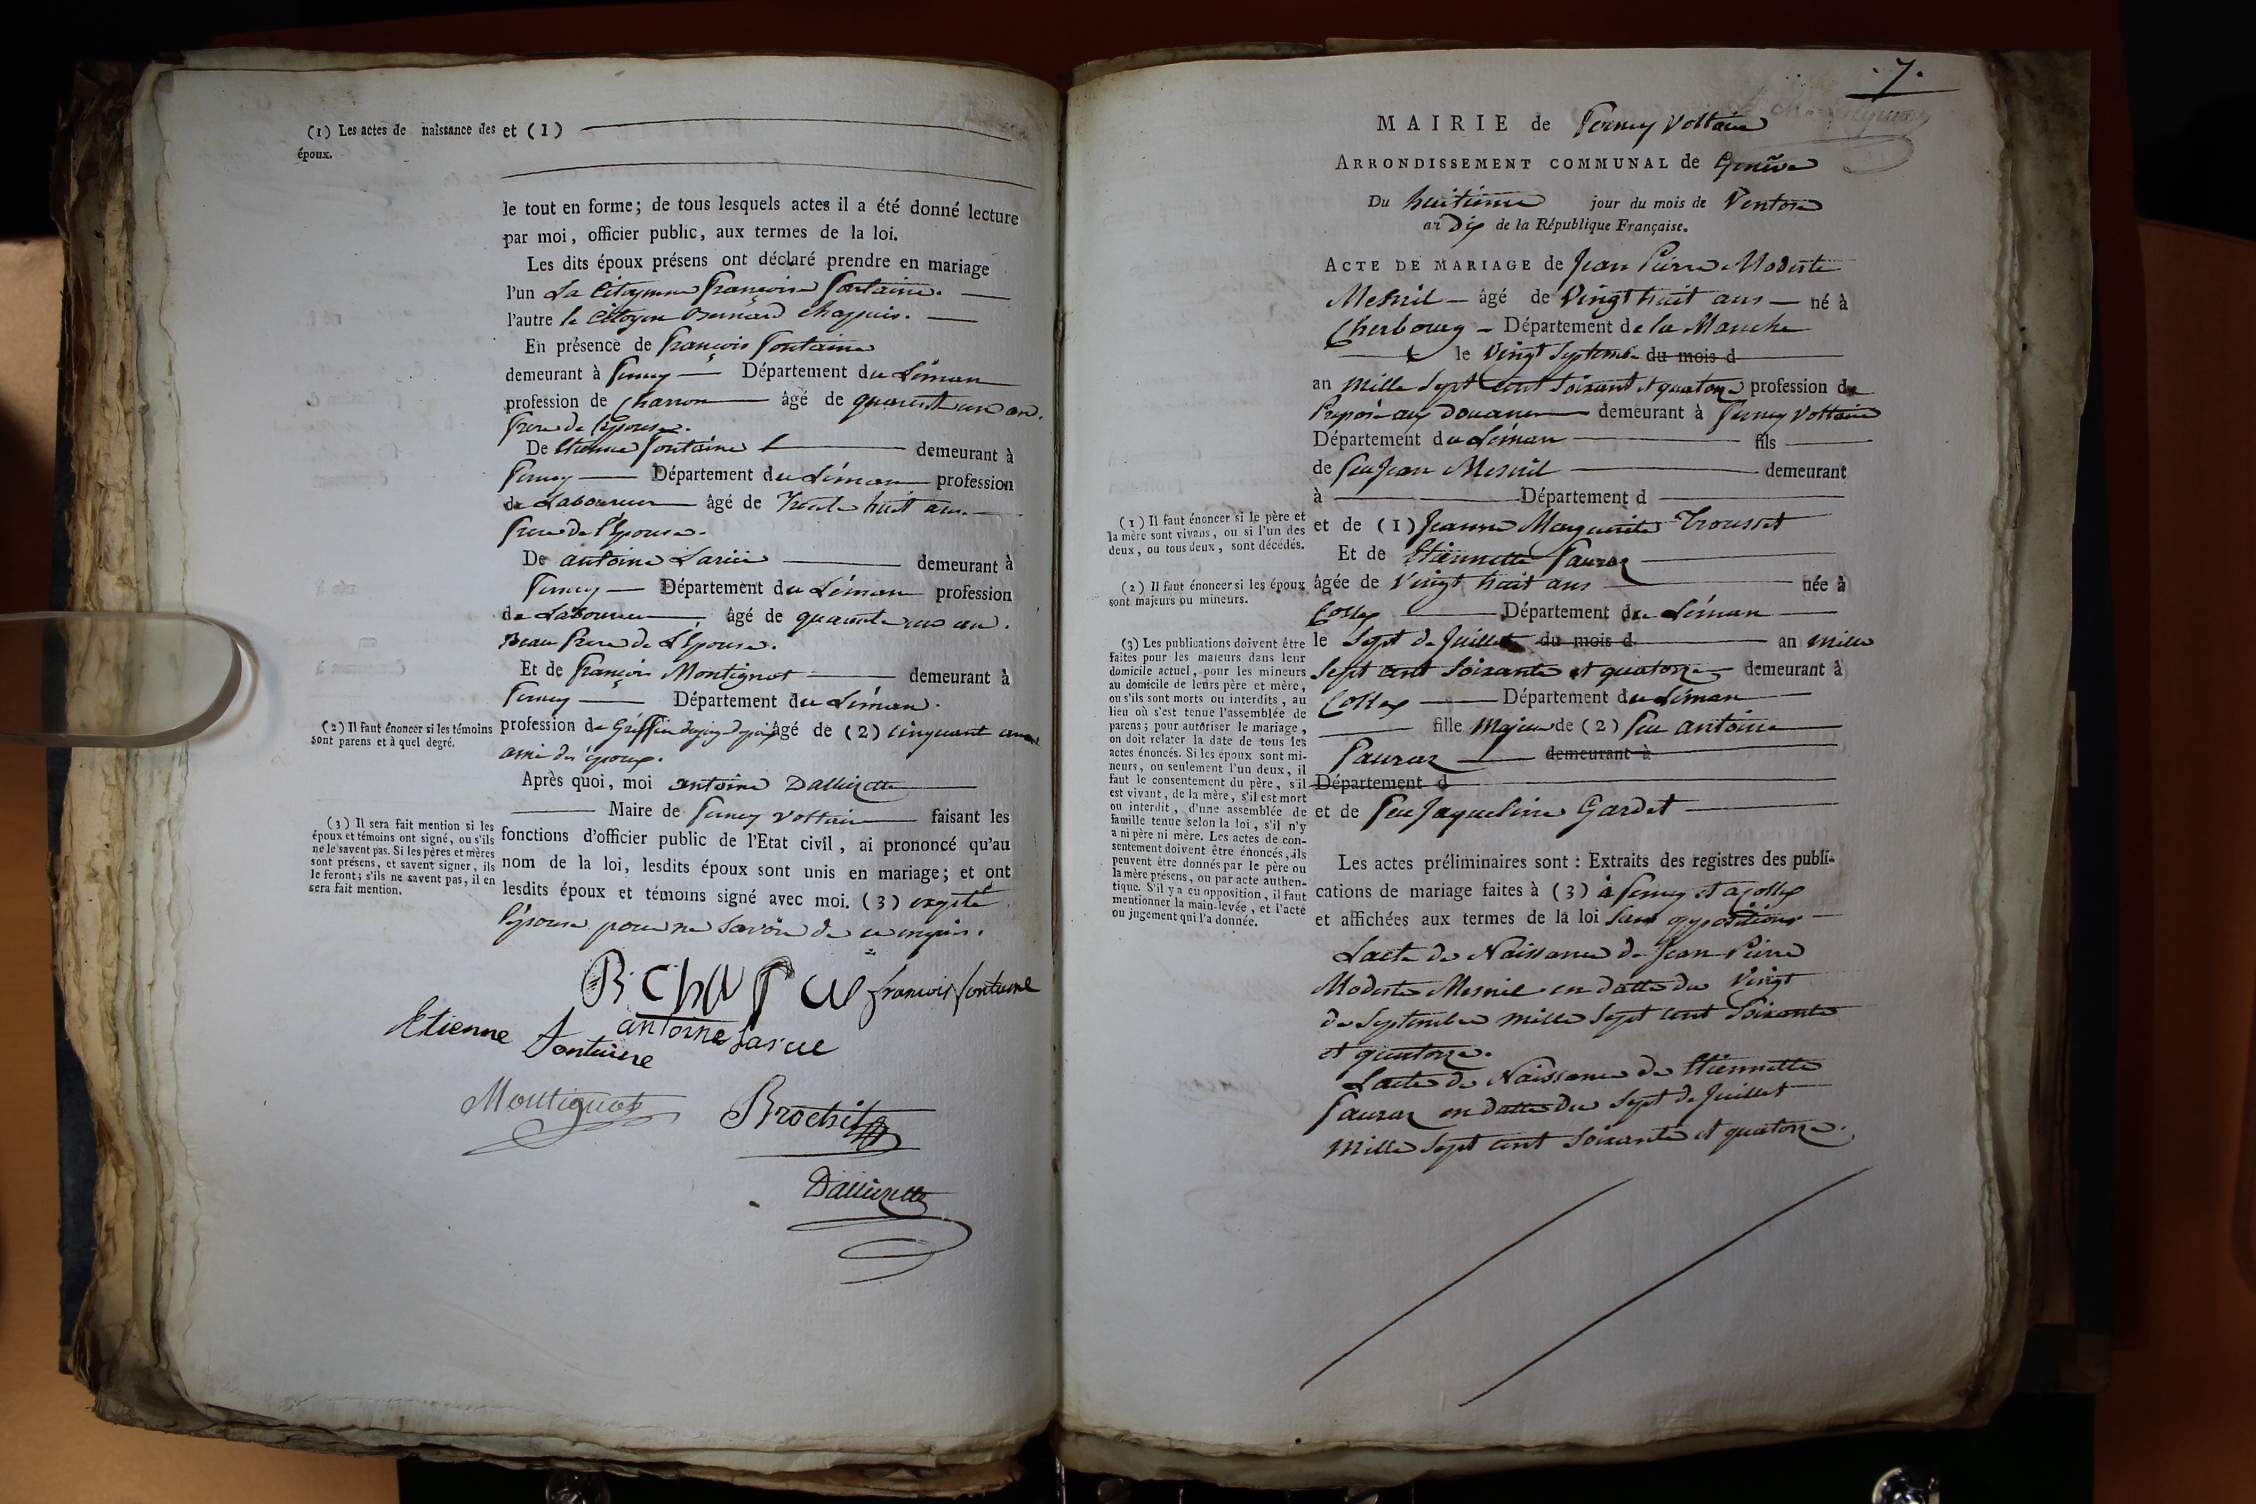 (1) Les actes de naissance des
époux.
et (1)
le tout en forme; de tous lesquels actes il a été donné lecture
par moi, officier public, aux termes de la loi.
Les dits époux présens ont déclaré prendre en mariage
l'un La Citoyenne françoise fontaine.
l'autre le Citoyen Bernard Chapuis.
En présence de françois fontaine
demeurant à Ferney Département du Léman
profession de Charron âgé de quarente un an.
frere de l'épouse.
De Etienne fontaine demeurant à
Ferney Département du Léman profession
de Laboureur âgé de trente huit ans
frere de l'Epouse.
De antoine Larue demeurant à
Ferney Département du Léman profession
de Laboureur âgé de quarante un an.
Beau frere de l'épouse.
Et de françois Montignot demeurant à
Ferney Département du Léman.
(2) Il faut énoncer si les témoins
sont parens et à quel degré.
profession de Greffier âgé de (2) cinquant
ami des époux.
Après quoi, moi antoine
Maire de Ferney voltaire faisant les
(3) Il sera fait mention si les
époux et témoins ont signé, ou s'ils
ne le savent pas. Si les pères et mères
sont présens, et savent signer, ils
le feront; s'ils ne savent pas, il en
sera fait mention.
fonctions d'officier public de l'Etat civil, ai prononcé qu'au
nom de la loi, lesdits époux sont unis en mariage; et ont
lesdits époux et témoins signé avec moi. (3) excepté
l'épouse pour ne savoir de ce enquis.
francois fontaine
Etienne fontaine
antoine Larue
Montignot
Brochet
. 7 .
MAIRIE de Ferney Voltaire
ARRONDISSEMENT COMMUNAL de Genêve
Du huitieme jour du mois de Ventose
an Dix de la République Française.
ACTE DE MARIAGE de Jean Pierre Modeste
Mesnil âgé de Vingt huit ans né à
Cherbourg Département de la Manche
le Vingt Septembre du mois d
an mille Sept cent Soixant et quatorze profession de
Preposé aux Douanes demeurant à Ferney Voltaire
Département du Léman fils
de feu Jean Mesnil demeurant
à Département d
(1) Il faut énoncer si le père et
la mère sont vivans, ou si l'un des
deux, ou tous deux, sont décédés.
et de (1) Jeanne Marguerite Trousset
Et de Etiennette Pauraz
(2) Il faut énoncer si les époux
sont majeurs ou mineurs.
âgée de Vingt huit ans née à
Collex Département du Léman
(3) Les publications doivent être
faites pour les majeurs dans leur
domicile actuel, pour les mineurs
au domicile de leurs père et mère,
ou s'ils sont morts ou interdits, au
lieu où s'est tenue l'assemblée de
parens; pour autoriser le mariage,
on doit relater la date de tous les
actes énoncés. Si les époux sont mi-
neurs, ou seulement l'un deux, il
faut le consentement du père, s'il
est vivant, de la mère, s'il est mort
ou interdit, d'une assemblée de
famille tenue selon la loi, s'il n'y
a ni père ni mère. Les actes de con-
sentement doivent être énoncés, ils
peuvent être donnés par le père ou
la mère présens, ou par acte authen-
tique. S'il y a eu opposition, il faut
mentionner la main-levée, et l'acte
ou jugement qui l'a donnée.
le Sept de Juillet du mois d an mille
Sept cent Soixante et quatorze demeurant à
Collex Département du Léman
fille Majeure de (2) feu antoine
Pauraz demeurant à
Département d
et de feu Jaqueline Gardet
Les actes préliminaires sont : Extraits des registres des publi-
cations de mariage faites à (3) à Ferney et a Collex
et affichées aux termes de la loi Sans oppositions
Lacte de Naissance de Jean Pierre
Modeste Mesnil en datte du Vingt
de Septembre mille Sept cent Soixante
et quatorze.
Lacte de Naissance de Etiennette
Pauraz en datte du Sept de Juillet
mille Sept cent Soixante et quatorze.